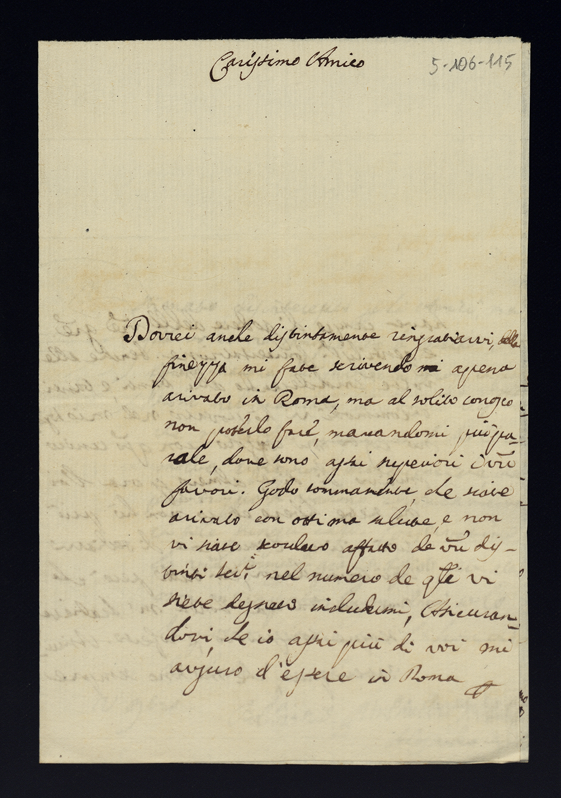 Carissimo Amico
5-106-115
Dovrei anche distintamente ringratiarvi, della
finezza mi fate scrivendomi apena
arivato in Roma, ma al solito conosco
non poterlo fare, mancandomi più pa-
role, dove sono assai superiori i vri
favori. Godo sommamente, che siate
arivato con ottima salute, e non
vi siate scordato affatto de vri dis-
tinti seri nel numero de qti vi
siete degnato includermi, Assicuran-
dovi, che io assai più di voi mi
auguro d'essere in Roma